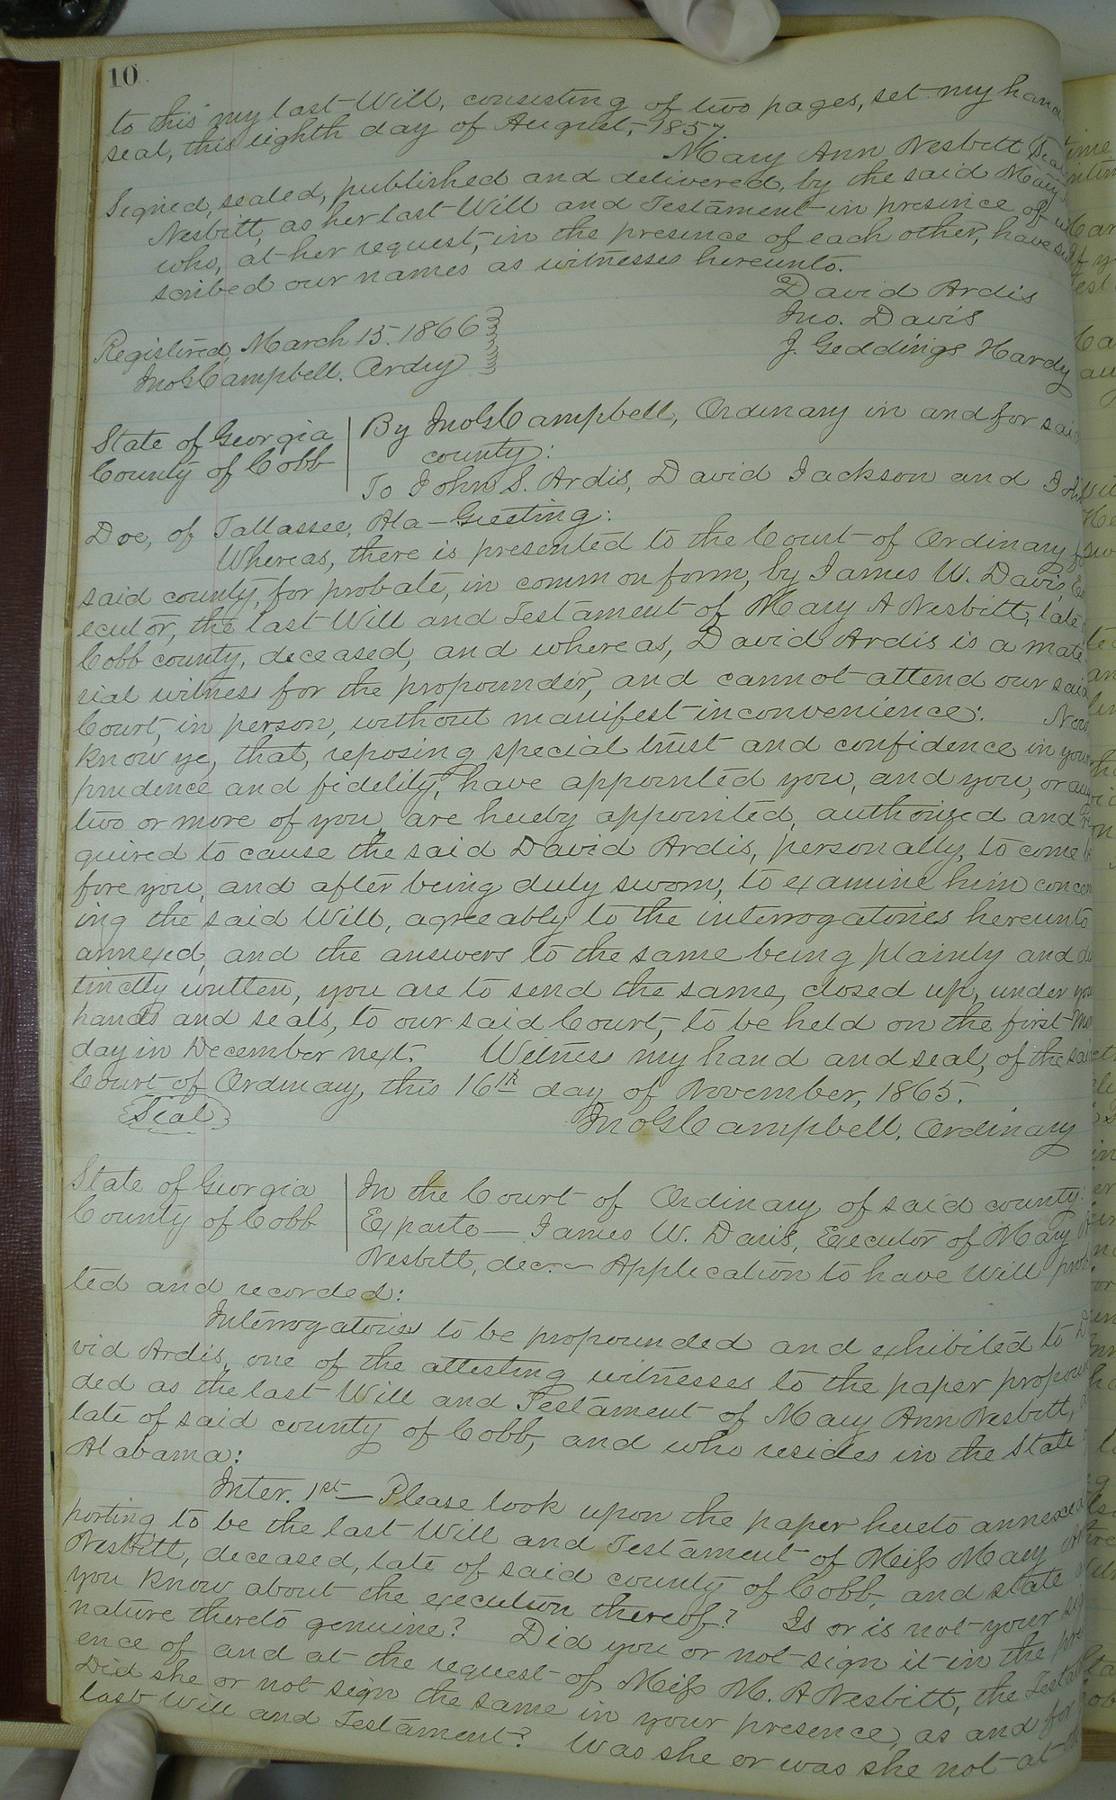 10
to this my last Will, consisting of two pages, set my hand
seal, this eighth day of August, 1857.
Mary Ann Nesbitt (Seal
Signed, sealed, published and delivered, by the said Mary
Nesbitt, as her last Will and Testament in presince of us
who, at her request, in the presence of each other, have sub
scribed our names as witnesses hereunto.
David Ardis
Jno. Davis
J. Geddings Hardy
Registered March 15. 1866
Jno G Campbell. Ordry
State of Georgia
County of Cobb
By Jno G Campbell, Ordinary in and for said
county:
To John S. Ardis, David Jackson and John
Doe, of Tallassee, Ala - Greeting:
Whereas, there is presented to the Court of Ordinary
said county, for probate, in common form, by James W. Davis, Ex
ecutor, the last Will and Testament of Mary A Nesbitt, late
Cobb county, deceased, and whereas, David Ardis is a mate
rial witness for the propounder, and cannot attend our said
Court, in person, without manifest inconvenience: Now
know ye, that, reposing special trust and confidence in your
prudence and fidelity, have appointed you, and you, or any
two or more of you, are hereby appointed, authorized and re
quired to cause the said David Ardis, personally, to come be
fore you, and after being duly sworn, to examine him concern
ing the said Will, agreeably to the interrogatories hereunto
annexed, and the answers to the same being plainly and dis
tinctly written, you are to send the same, closed up, under your
hands and seals, to our said Court, to be held on the first Mon
day in December next. Witness my hand and seal, of the said
Court of Ordinary, this 16th day of November, 1865.
(Seal)
Jno G Campbell. Ordinary
State of Georgia
County of Cobb
In the Court of Ordinary of said county:
Exparte - James W. Davis, Executor of Mary A
Nesbitt, dec. - Application to have Will proba
ted and recorded:
Interrogatories to be propounded and exhibited to Da
vid Ardis, one of the attesting witnesses to the paper propoun
ded as the last Will and Testament of Mary Ann Nesbitt,
late of said county of Cobb, and who resides in the State
Alabama:
Inter. 1st - Please look upon the paper hereto annexed
porting to be the last Will and Testament of Miss Mary
Nesbitt, deceased, late of said county of Cobb, and state
you know about the execution thereof? Is or is not your sig
nature thereto genuine? Did you or not sign it in the pres
ence of and at the request of Miss M. A Nesbitt, the
Did she or not sign the same in your presence, as and for
last Will and Testament? Was she or was she not at